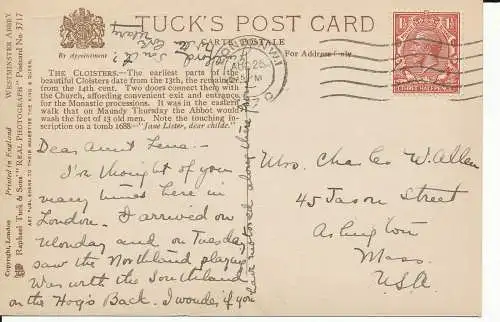 TUCK'S POST CARD
CARTE POSTALE
By Appointment
For Address Only
THE CLOISTERS.— The earliest parts of the
beautiful Cloisters date from the 13th cent. and
from the 14th cent. Two doors connect them with
the Church, affording convenient exit and entrance
for the Monastic processions. It was in the eastern
walk that on Maundy Thursday the Abbot would
wash the feet of 13 old men. Note the touching in-
scription on a tomb 1688— "Jane Lister, dear childe."
Dear Aunt Lena—
I've thought of you
many times here in
London. I arrived on
Monday and on Tuesday
saw the Northland playing
was worth the Southland
on the Hog's Back. I wonder if you
have motored along there
Love
Mrs. Charles W. Allen
45 Jason Street
Arlington
Mass.
USA
WESTMINSTER ABBEY
Raphael Tuck & Sons' "REAL PHOTOGRAPH" Postcard No. 3717
ART PUBLISHERS TO THEIR MAJESTIES THE KING & QUEEN.
Printed in England
Copyright, London
THREE HALFPENCE